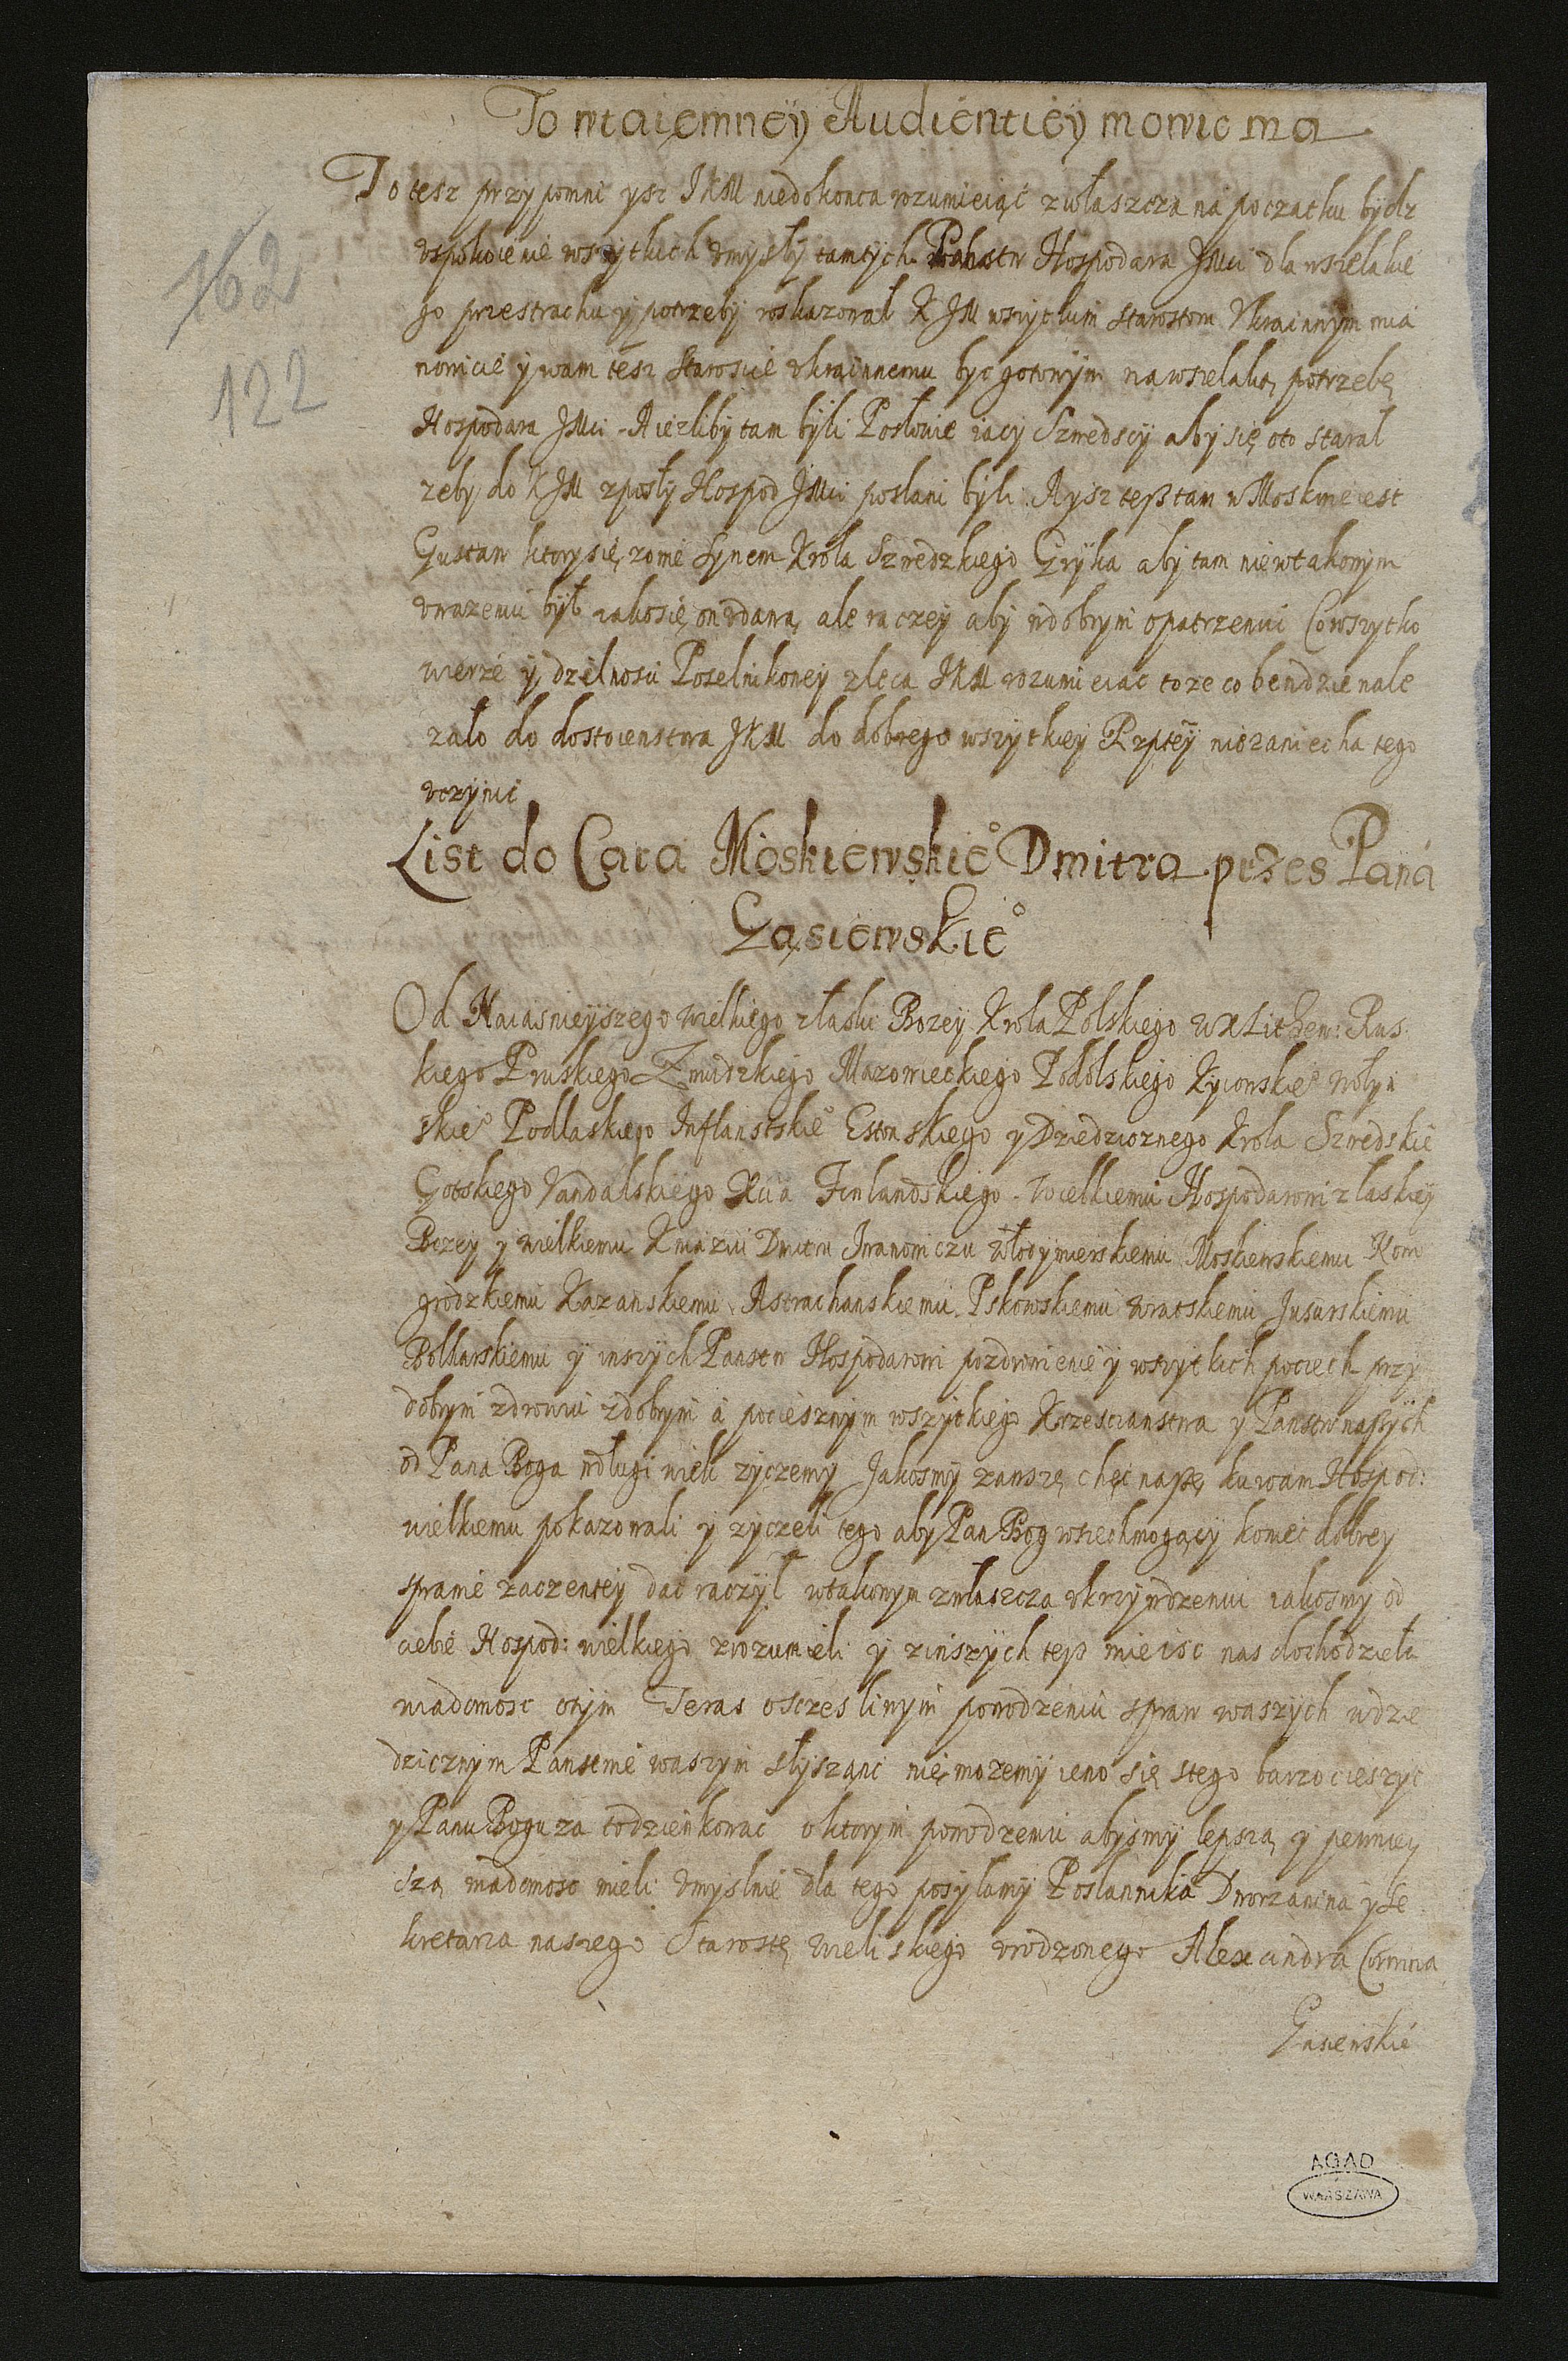 To wtaiemneÿ Audientieÿ mowic ma
To tesz przypomni ysz JKM niedokonca rozumieiąć zwłaszcza na początku bydz
162
122
vspokoienie wszytkich vmysłÿ tamtÿch Panstw Hospodara JMci dla wszelakie
go przestrachu ÿ potrzebÿ roskazował KJM wszytkim Starostom Vkrainnÿm mia
nowicie ÿ wam tesz Staroscie vkrainnemu byc gotowÿm nawszelaką potrzebę
Hospodara JMci. A iezlibÿ tam bÿli Posłowie iacy Szwedscÿ abÿ się oto starał
zebÿ do KJM zposłÿ Hospod JMci posłani bÿli. A ysz teß tam w Moskwie iest
Gustaw ktory się zowie Synem Krola Szwedzkiego Erÿka abÿ tam niewtakowym
vwazeniu bÿł iakosię on vdawa, ale raczeÿ abÿ wdobrym opatrzeniu Cowszytko
wierze ÿ dzielnosci Poselnikoweÿ zleca JKM rozumieiac to ze co bendzie nale
zało do dostoienstwa JKM do dobrego wszytkieÿ Rzpteÿ niezaniecha tego
vczÿnic
List do Cara Moskiewskie° Dmitra przes Pana
Gąsiewskie°
Od Naiasnieÿszego wielkiego złaski Bozeÿ Krola Polskiego WXLithew: Rus
kiego Pruskiego Zmudzkiego Mazowieckiego Podolskiego Kyiowskie° Wołÿn
skie° Podlaskiego Inflanstskie° Estonskiego y Dziedzicznego Krola Szwedskie
Gotskiego Vandalskiego Xcia Finlandskiego. Wielkiemu Hospodarowi złaskieÿ
Bozeÿ y wielkiemu Kniaziu Dmitru Iwanowiczu Włodymierskiemu Moskiewskiemu Now
grodzkiemu Kazanskiemu Astrachanskiemu Pskowskiemu Wiatskiemu Jusurskiemu
Bolharskiemu ÿ inszÿch Panstw Hospodarowi pozdrowienie ÿ wszytkich pociech przÿ
dobrÿm zdrowiu zdobrÿm á pociesznÿm wszytkiego Krzescianstwa y Panstw naßÿch
od Pana Boga wdługi wiek zyczemÿ Jakosmÿ zawsze chęć naße ku wam Hospod:
wielkiemu pokazowali y zyczeli tego aby Pan Bog wszechmogącÿ koniec dobreÿ
sprawie zaczenteÿ dac raczÿl wtakowym zwłaszcza vkrzywdzeniu iakosmÿ od
ciebie Hospod: wielkiego zrozumieli ÿ zinszÿch teß mieisc nas dochodzieła
wiadomosc otÿm Teras osczesliwÿm powodzeniu spraw waszÿch wdzie
dzicznÿm Panstwie waszÿm słÿszanc nie mozemÿ ieno się stego barzo cieszyc
y Panu Bogu za todzienkowac oktorÿm powodzeniu abÿsmÿ lepszą ÿ pewniey
szą wiadomosc mieli vmyslnie dla tego posÿlamÿ Posłannika Dworzanina y Se
kretarza naszego Starostę Wieliskiego vrodzonego Alexandra Corwina
Gasiewskie
AGAD
WARSZAWA